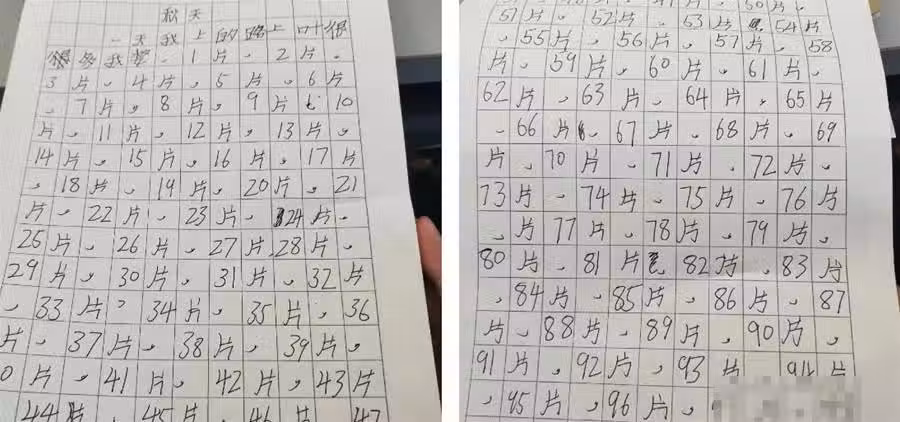 秋天
一天我上的路上叶很
多我，1片，2片，
3片，4片，5片，6片
，7片，8片，9片，10
片，11片，12片，13片，
14片，15片，16片，17片
，18片，19片，20片，21
片，22片，23片，24片，
25片，26片，27片，28片，
29片，30片，31片，32片
，33片，34片，35片，36
片，37片，38片，39片，
0片，41片，42片，43片
44片，45片，46片，47
50片，
51片，52片，53片，54片
，55片，56片，57片，58
片，59片，60片，61片，
62片，63片，64片，65片
，66片，67片，68片，69
片，70片，71片，72片，
73片，74片，75片，76片
，片77片，78片，79片，
80片，81片，82片，83片
，84片，85片，86片，87
片，88片，89片，90片，
91片，92片，93片，94片
，95片，96片，